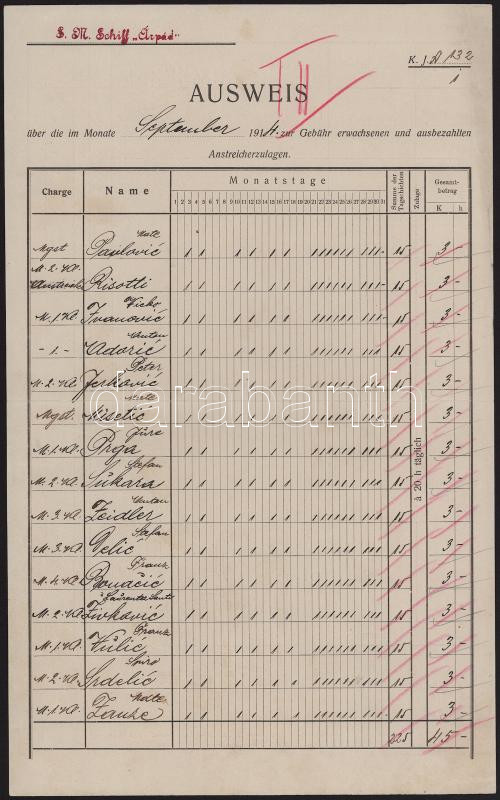 S. M. Schiff „Árpád“
K. J. A 132
1
AUSWEIS
über die im Monate September 1914. zur Gebühr erwachsenen und ausbezahlten
Anstreicherzulagen.
Charge Name Monatstage Summe der Tagschichten Zulage Gesamtbetrag
1 2 3 4 5 6 7 8 9 10 11 12 13 14 15 16 17 18 19 20 21 22 23 24 25 26 27 28 29 30 31 K h
Mate
Mgst Pavlović 15 3 –
M. 2. Kl.
Risotti 15 3 –
Vicko
M. 1. Kl. Ivanović 15 3 –
Anton
– 1. – Adorić 15 3 –
Peter
M. 2. Kl. Jerković 15 3 –
Mate
Mgst. Kisetić 15 3 –
Jure
M. 1. Kl. Prga 15 3 –
Stefan
M. 2. Kl. Sukara 15 3 –
Anton
M. 3. Kl. Zeidler 15 3 –
Stefan
M. 3. Kl. Velić 15 3 –
Frank
M. 4. Kl. Bonačić 15 3 –
M. 2. Kl. Živković 15 3 –
Frank
M. 1. Kl. Vulić 15 3 –
Spiro
M. 2. Kl. Srdelić 15 3 –
Mate
M. 1. Kl. 15 3 –
à 20 h täglich
225 45 –
darabanth